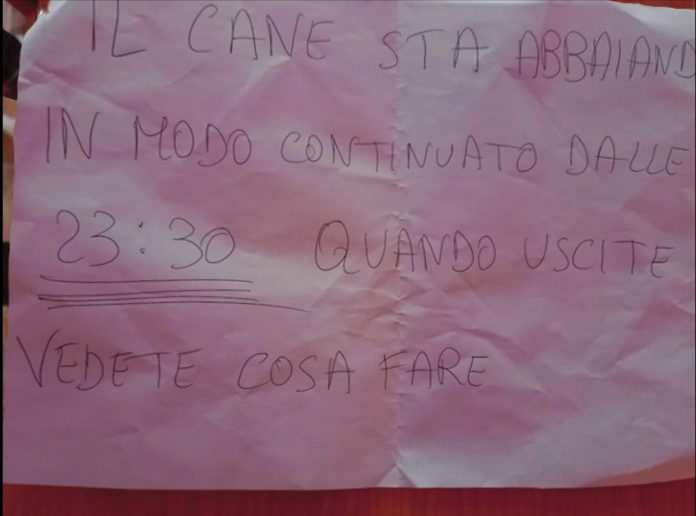 IL CANE STA ABBAIAND
IN MODO CONTINUATO DALLE
23:30 QUANDO USCITE
VEDETE COSA FARE